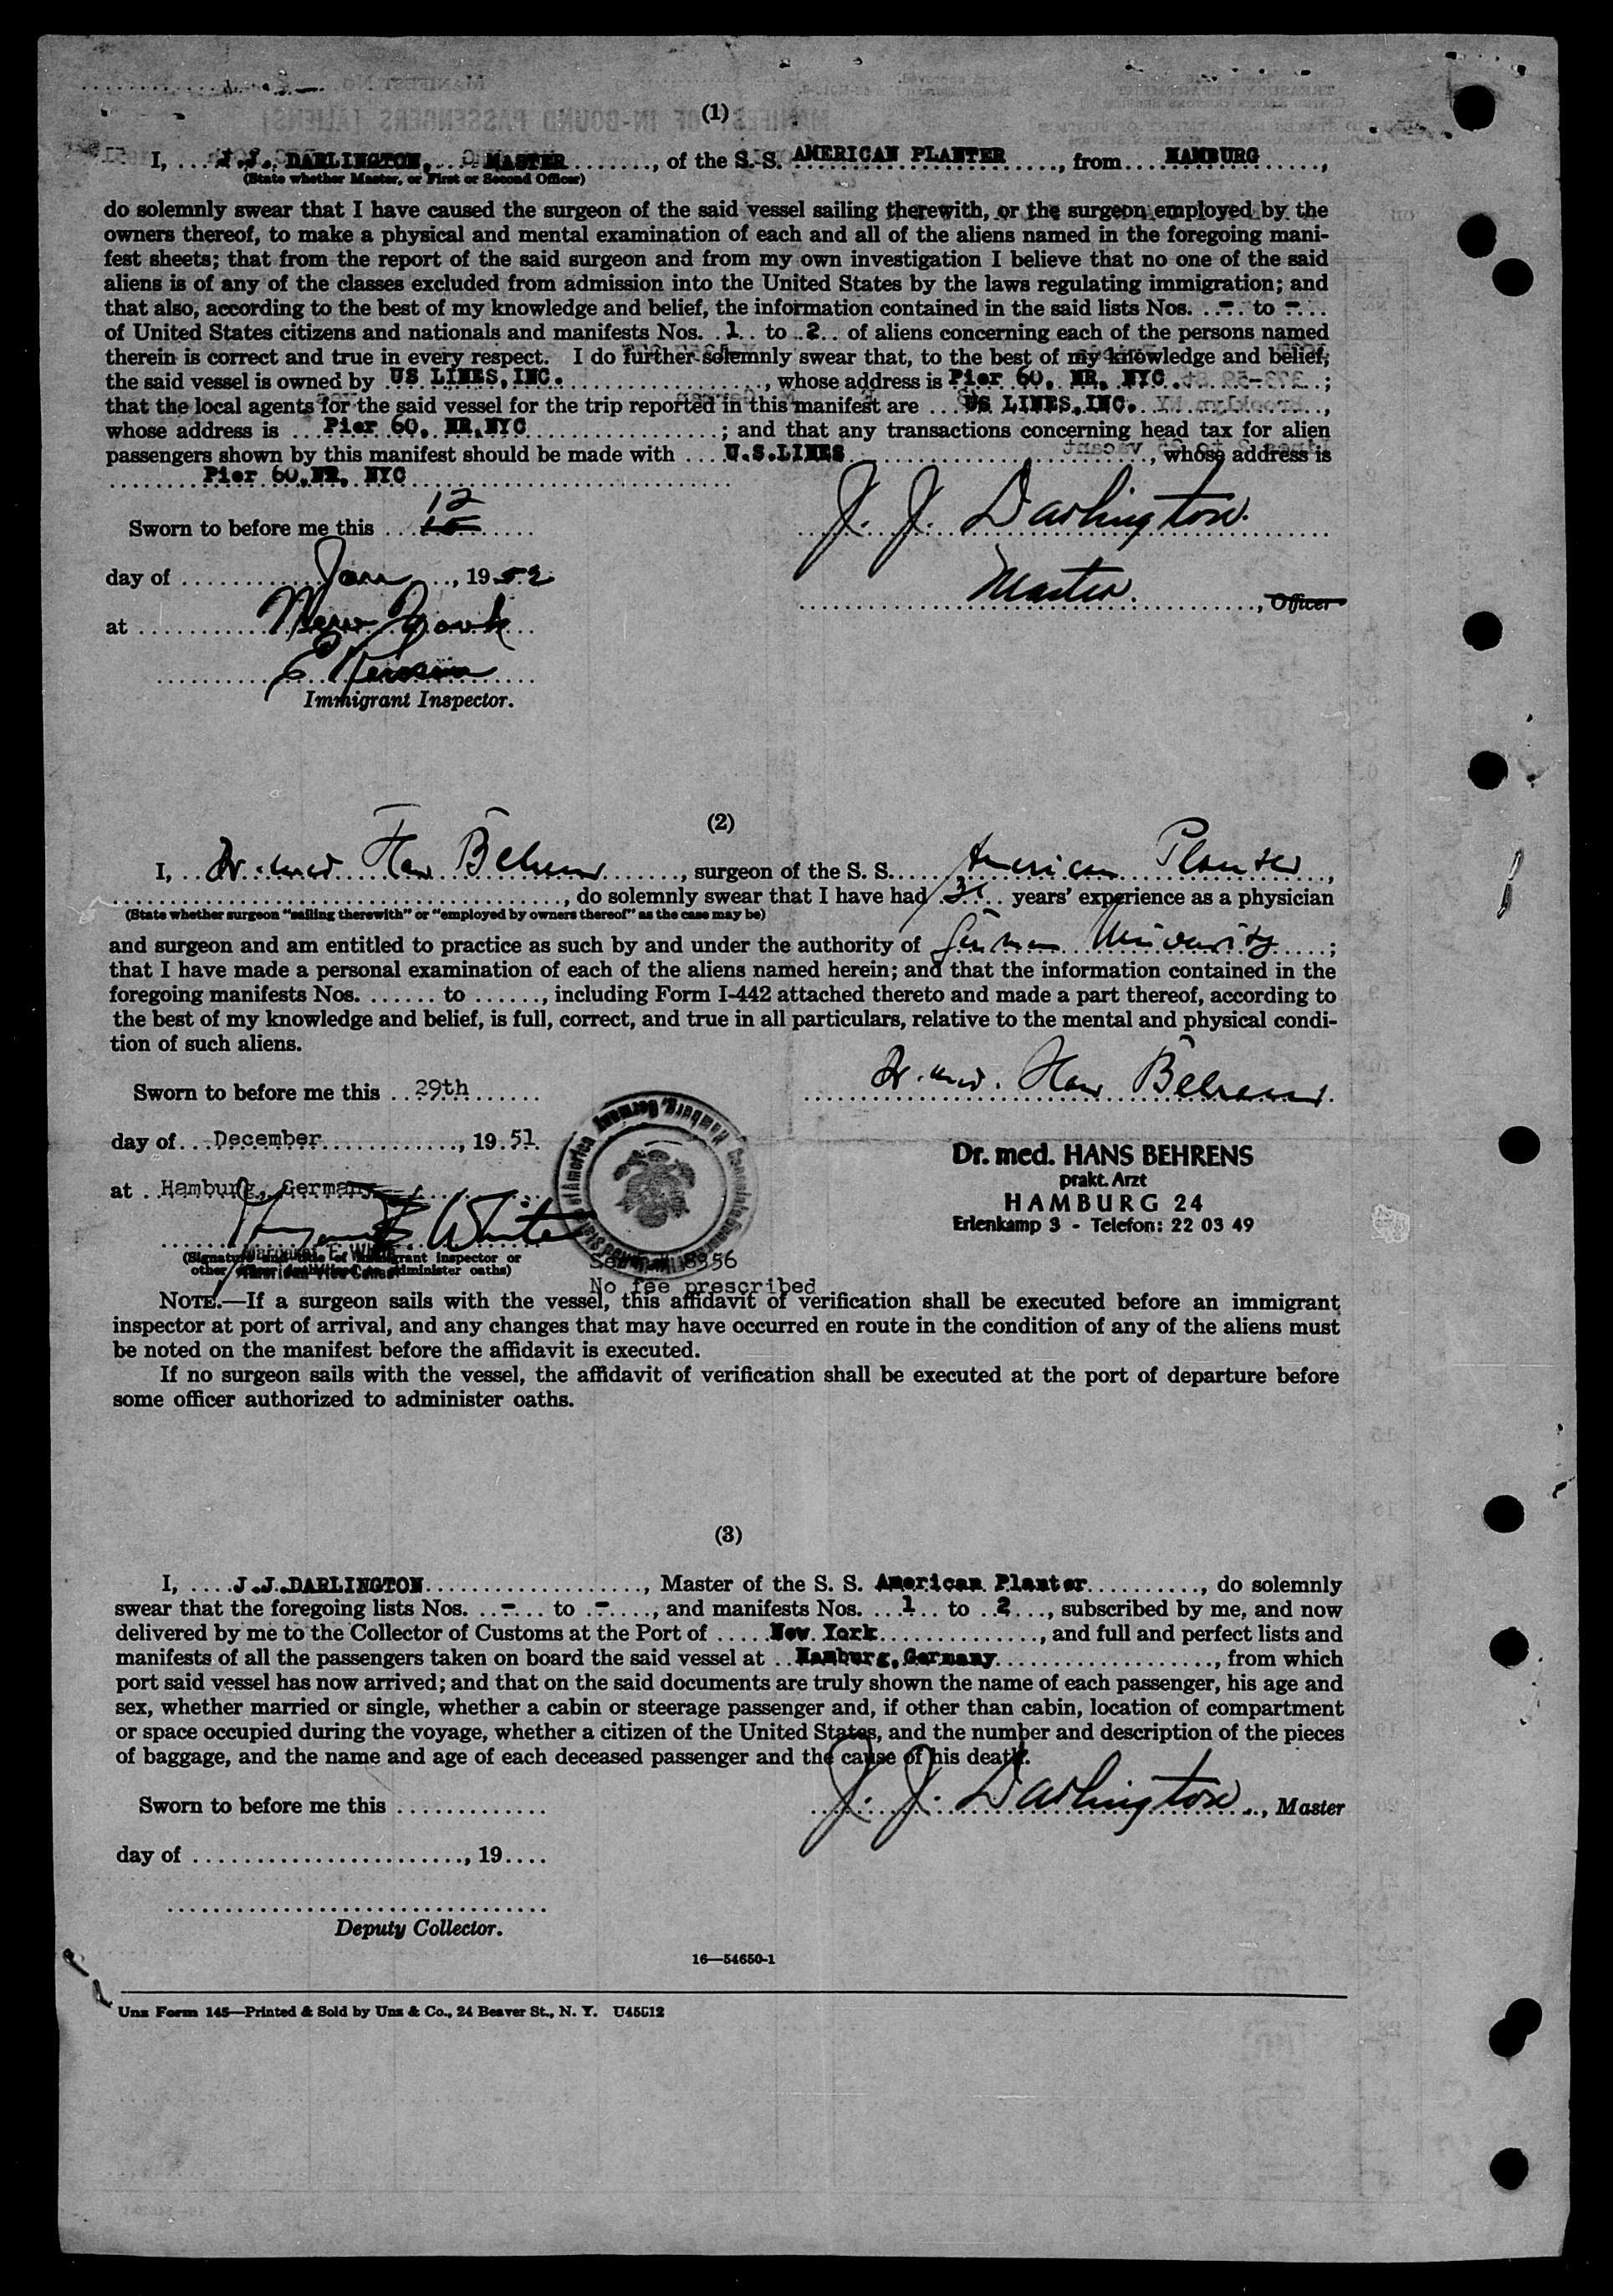 (1)
I, J.J. DARLINGTON, MASTER, of the S. S. AMERICAN PLANTER, from HAMBURG,
(State whether Master, or First or Second Officer)
do solemnly swear that I have caused the surgeon of the said vessel sailing therewith, or the surgeon employed by the
owners thereof, to make a physical and mental examination of each and all of the aliens named in the foregoing mani-
fest sheets; that from the report of the said surgeon and from my own investigation I believe that no one of the said
aliens is of any of the classes excluded from admission into the United States by the laws regulating immigration; and
that also, according to the best of my knowledge and belief, the information contained in the said lists Nos. - to -
of United States citizens and nationals and manifests Nos. 1 to 2 of aliens concerning each of the persons named
therein is correct and true in every respect. I do further solemnly swear that, to the best of my knowledge and belief,
the said vessel is owned by US LINES, INC., whose address is Pier 60, NR, NYC;
that the local agents for the said vessel for the trip reported in this manifest are US LINES, INC.,
whose address is Pier 60, NR, NYC; and that any transactions concerning head tax for alien
passengers shown by this manifest should be made with U.S.LINES, whose address is
Pier 60, NR, NYC
Sworn to before me this 12
J. J. Darlington
day of Jan, 1952
Master, Officer
at New York
Immigrant Inspector.
(2)
I, Dr. med. Hans Behrens, surgeon of the S. S. American Planter,
, do solemnly swear that I have had years' experience as a physician
(State whether surgeon "sailing therewith" or "employed by owners thereof" as the case may be)
and surgeon and am entitled to practice as such by and under the authority of German University;
that I have made a personal examination of each of the aliens named herein; and that the information contained in the
foregoing manifests Nos. ...... to ......, including Form I-442 attached thereto and made a part thereof, according to
the best of my knowledge and belief, is full, correct, and true in all particulars, relative to the mental and physical condi-
tion of such aliens.
Dr. med. Hans Behrens
Sworn to before me this 29th
day of December, 1951
Dr. med. HANS BEHRENS
prakt. Arzt
HAMBURG 24
Erlenkamp 3 - Telefon: 22 03 49
at Hamburg, Germany
Margaret E. White
(Signature and title of immigrant inspector or
other officer authorized to administer oaths)
No fee prescribed
NOTE.—If a surgeon sails with the vessel, this affidavit of verification shall be executed before an immigrant
inspector at port of arrival, and any changes that may have occurred en route in the condition of any of the aliens must
be noted on the manifest before the affidavit is executed.
If no surgeon sails with the vessel, the affidavit of verification shall be executed at the port of departure before
some officer authorized to administer oaths.
(3)
I, J.J.DARLINGTON, Master of the S. S. American Planter, do solemnly
swear that the foregoing lists Nos. - to -, and manifests Nos. 1 to 2, subscribed by me, and now
delivered by me to the Collector of Customs at the Port of New York, and full and perfect lists and
manifests of all the passengers taken on board the said vessel at Hamburg, Germany, from which
port said vessel has now arrived; and that on the said documents are truly shown the name of each passenger, his age and
sex, whether married or single, whether a cabin or steerage passenger and, if other than cabin, location of compartment
or space occupied during the voyage, whether a citizen of the United States, and the number and description of the pieces
of baggage, and the name and age of each deceased passenger and the cause of his death.
Sworn to before me this .............
J. J. Darlington, Master
day of ........................, 19....
Deputy Collector.
16—54650-1
Unz Form 145—Printed & Sold by Unz & Co., 24 Beaver St., N. Y. U45512